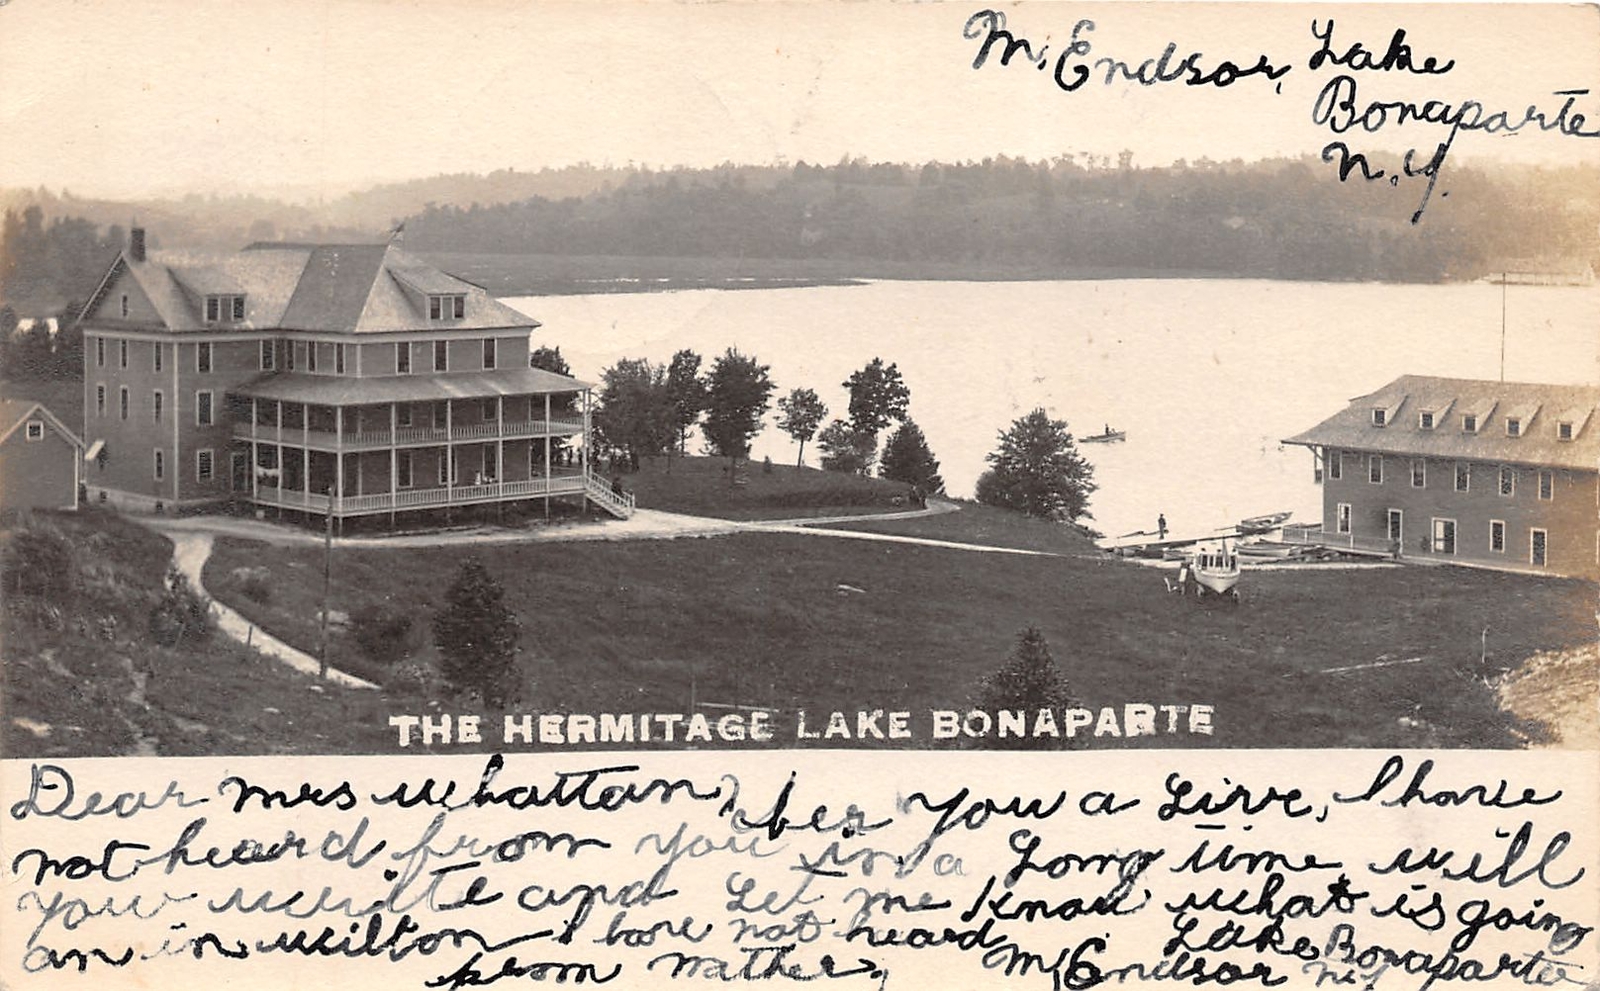 M. Endsor, Lake
Bonaparte
N.Y.
THE HERMITAGE LAKE BONAPARTE
Dear Mrs Whattan, you a Live, I have
not heard from you in a Long time will
you write and Let me know what is going
an in Wilton I have not heard
from Mother, M, Endsor Lake Bonaparte
N.Y